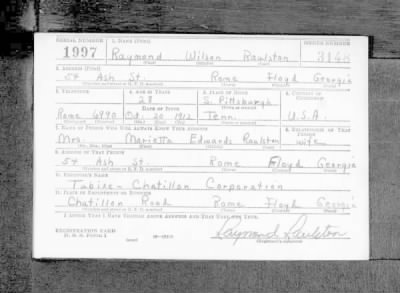 SERIAL NUMBER 1. NAME (Print) ORDER NUMBER
1997 Raymond Wilson Raulston 3148
(First) (Middle) (Last)
2. ADDRESS (Print)
54 Ash St. Rome Floyd Georgia
(Number and street or R. F. D. number) (Town) (County) (State)
3. TELEPHONE 4. AGE IN YEARS 5. PLACE OF BIRTH 6. COUNTRY OF CITIZENSHIP
28 S. Pittsburgh
DATE OF BIRTH (Town or county)
Rome 6990 Oct. 20 1912 Tenn. U.S.A.
(Exchange) (Number) (Mo.) (Day) (Yr.) (State or country)
7. NAME OF PERSON WHO WILL ALWAYS KNOW YOUR ADDRESS 8. RELATIONSHIP OF THAT PERSON
Mrs. Marietta Edwards Raulston wife
(Mr., Mrs., Miss) (First) (Middle) (Last)
9. ADDRESS OF THAT PERSON
54 Ash St. Rome Floyd Georgia
(Number and street or R. F. D. number) (Town) (County) (State)
10. EMPLOYER'S NAME
Tubize-Chatillon Corporation
11. PLACE OF EMPLOYMENT OR BUSINESS
Chatillon Road Rome Floyd Georgia
(Number and street or R. F. D. number) (Town) (County) (State)
I AFFIRM THAT I HAVE VERIFIED ABOVE ANSWERS AND THAT THEY ARE TRUE.
REGISTRATION CARD
D. S. S. FORM 1
(over) Raymond Raulston
(Registrant's signature)